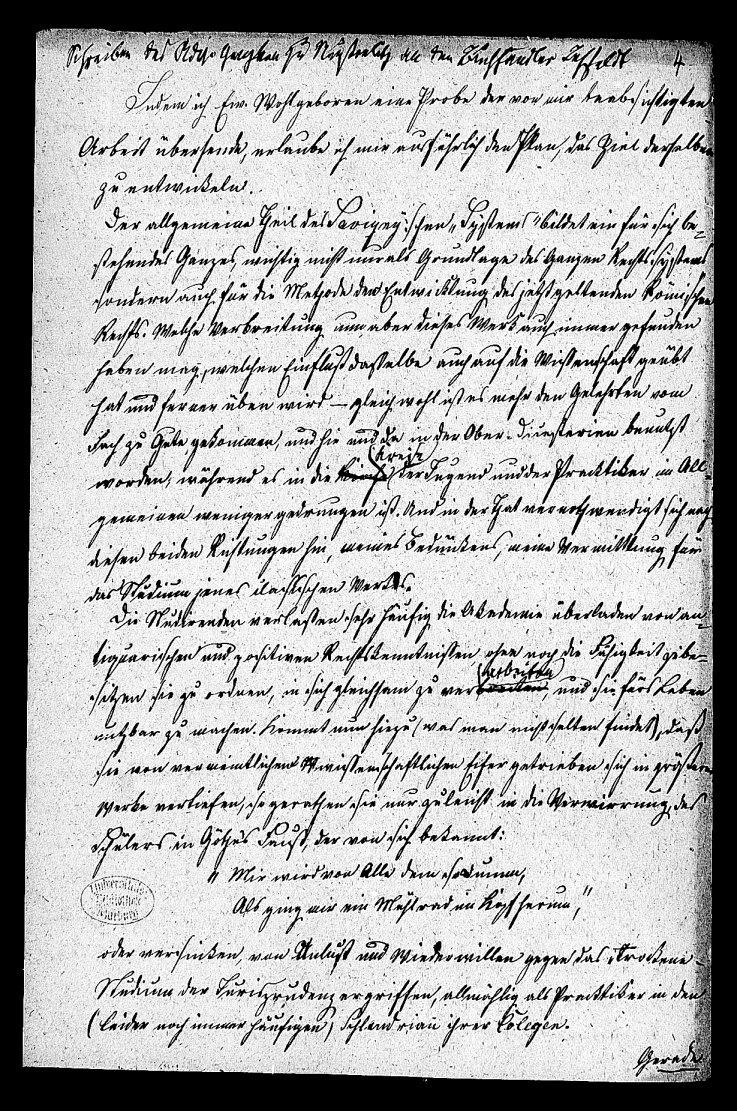 Schreiben des Adv. Genzken zu Neustrelitz an den Buchhändler Lehfeldt 4
Indem ich Ew. Wohlgeboren eine Probe der von mir beabsichtigten
Arbeit übersende, erlaube ich mir ausführlich den Plan, das Ziel derselben
zu entwickeln.
Der allgemeine Theil des Savigny'schen „Systems" bildet ein für sich be-
stehendes Ganzes, wichtig nicht nur als Grundlage des Ganzen Rechtssystems
sondern auch für die Methode der Entwicklung des jetzt geltenden Römischen
Rechts. Welche Verbreitung nun aber dieses Werk auch immer gefunden
haben mag, welchen Einfluß dasselbe auch auf die Wissenschaft geübt
hat und ferner üben wird – gleichwohl ist es mehr den Gelehrten vom
Fach zu Gute gekommen, und hie und da in der Ober-Dicasterien benutzt
worden, während es in die Kreise der Jugend und der Practiker im All-
gemeinen weniger gedrungen ist. Und in der That vernothwendigt sich nach
diesen beiden Richtungen hin, meines Bedünkens, eine Vermittlung für
das Studium jenes classischen Werkes.
Die Studirenden verlassen sehr häufig die Akademie überladen von an-
tiquarischen und positiven Rechtskenntnissen, ohne noch die Fähigkeit zu be-
sitzen sie zu ordnen, in sich gleichsam zu verarbeiten, und sie fürs Leben
nutzbar zu machen. Kommt nun hiezu (was man nicht selten findet), daß
sie von vermeintlichem wissenschaftlichen Eifer getrieben sich in größere
Werke vertiefen, so gerathen sie nur zu leicht in die Verwirrung des
Schülers in Göthe's Faust, der von sich bekannt:
„Mir wird von Alle dem so dumm,
Als ging mir ein Mühlrad im Kopf herum,"
Universitäts
Bibliothek
Marburg
oder versinken, von Unlust und Wiederwillen gegen das trockene
Studium der Jurisprudenz ergriffen, allmählig als Practiker in den
(leider noch immer häufigen) Schlendrian ihrer Collegen.
Gerade